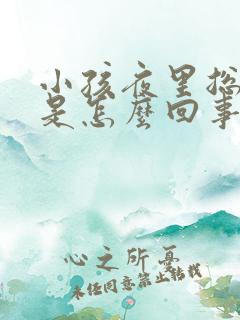 小孩夜里总
是怎麼回事
心之所憂
未经同意禁止转载